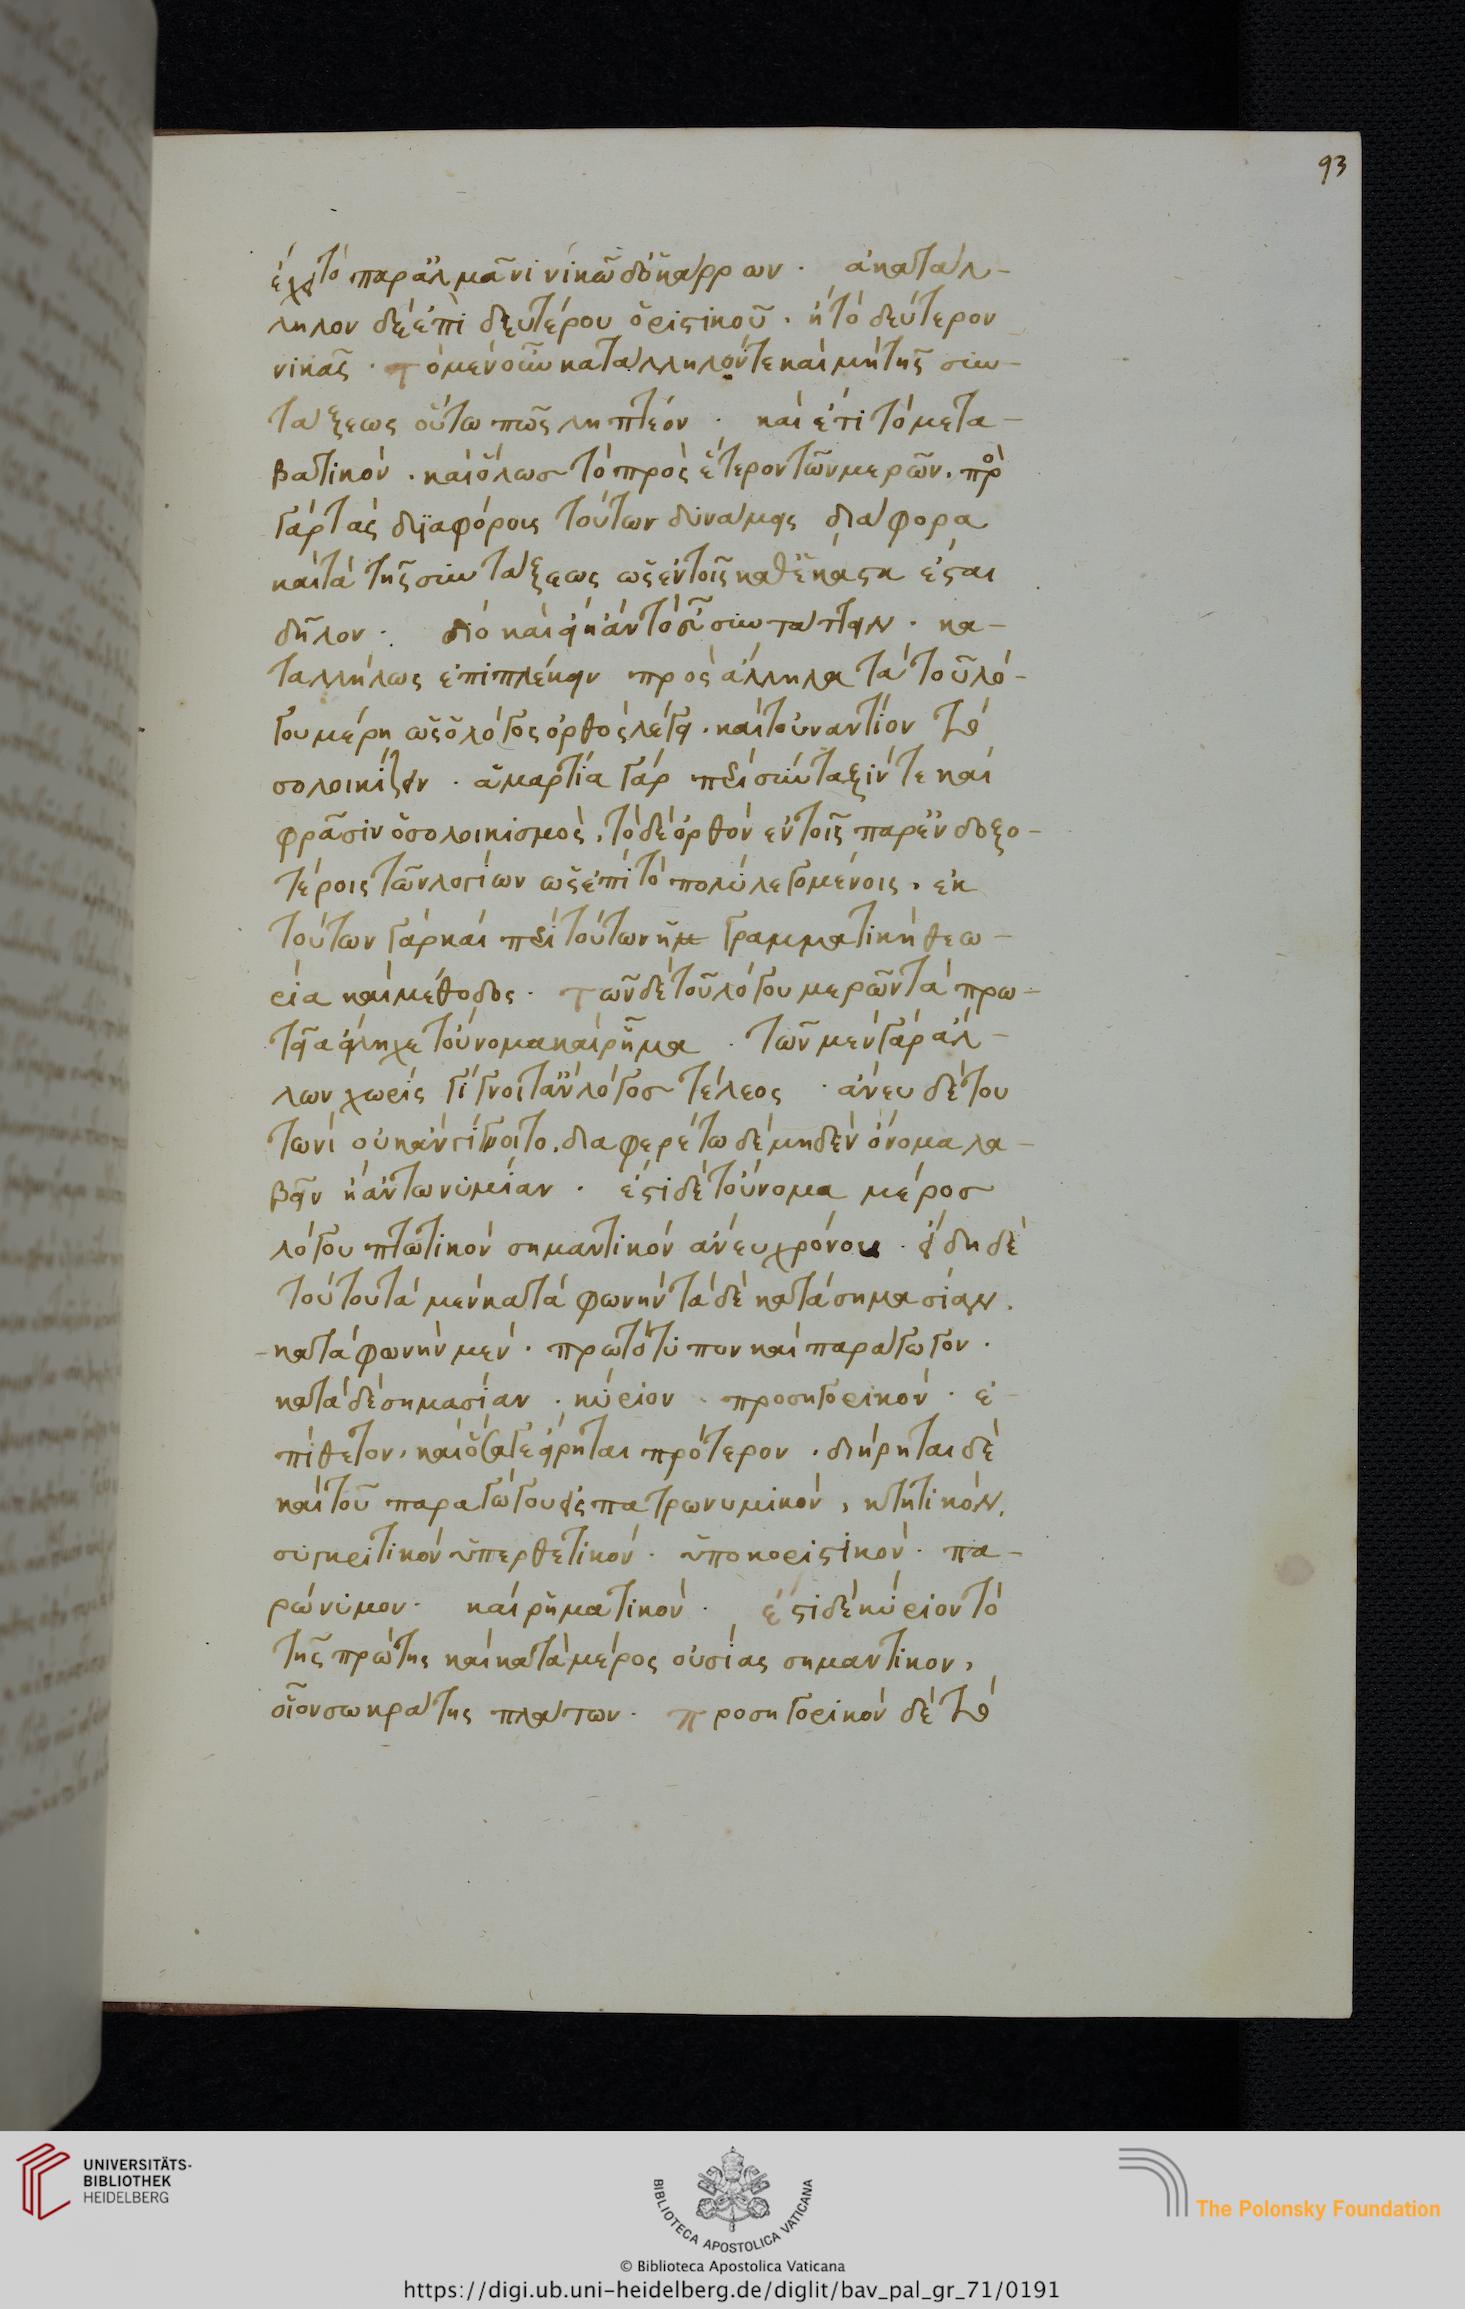 93
ἔχει τὸ παρ' Ἀλκμᾶνι νικῶ δ' ὁ κάρρων. ἀκατάλ-
ληλον δὲ ἐπὶ δευτέρου ὁριστικοῦ. ἢ τὸ δεύτερον
νικᾷς. τὸ μὲν οὖν κατάλληλόν τε καὶ μὴ τῆς συν-
τάξεως οὕτω πως ληπτέον. καὶ ἔτι τὸ μετα-
βατικὸν. καὶ ὅλως τὸ πρὸς ἕτερον τῶν μερῶν. πρὸ
γὰρ τὰς διαφόρους τούτων δυνάμεις διάφορα
καὶ τὰ τῆς συντάξεως ὡς ἐν τοῖς καθ' ἕκαστα ἔσται
δῆλον. διὸ καὶ εἴη ἂν τὸ εὖ συντάττειν. κα-
ταλλήλως ἐπιπλέκειν πρὸς ἄλληλα τὰ τοῦ λό-
γου μέρη ὡς ὁ λόγος ὀρθὸς λέγει. καὶ τοὐναντίον τὸ
σολοικίζειν. ἁμαρτία γὰρ περὶ σύνταξίν τε καὶ
φρᾶσιν ὁ σολοικισμὸς, τὸ δὲ ὀρθὸν ἐν τοῖς παρ' ἐνδοξο-
τέροις τῶν λογίων ὡς ἐπὶ τὸ πολὺ λεγομένοις, ἐκ
τούτων γὰρ καὶ περὶ τούτων ἡμ γραμματικὴ θεω-
ρία καὶ μέθοδος. τῶν δὲ τοῦ λόγου μερῶν τὰ πρω-
τεῖα εἴληχε τοὔνομα καὶ ῥῆμα. τῶν μὲν γὰρ ἄλ-
λων χωρὶς γίγνοιτ' ἂν λόγος τέλεος. ἄνευ δὲ του
τωνὶ οὐκ ἂν γίγνοιτο. διαφερέτω δὲ μηδὲν ὄνομα λα-
βεῖν ἢ ἀντωνυμίαν. ἔστι δὲ τοὔνομα μέρος
λόγου πτωτικὸν σημαντικὸν ἄνευ χρόνου. εἴδη δὲ
τούτου τὰ μὲν κατὰ φωνὴν τὰ δὲ κατὰ σημασίαν.
κατὰ φωνὴν μὲν. πρωτότυπον καὶ παράγωγον.
κατὰ δὲ σημασίαν. κύριον. προσηγορικὸν. ἐ-
πίθετον, καὶ ὅσα γε εἴρηται πρότερον. διῄρηται δὲ
καὶ τοῦ παραγώγου εἰς πατρωνυμικὸν, κτητικὸν.
συγκριτικὸν ὑπερθετικὸν. ὑποκοριστικὸν. πα-
ρώνυμον. καὶ ῥηματικὸν. ἔστι δὲ κύριον τὸ
τῆς πρώτης καὶ κατὰ μέρος οὐσίας σημαντικον,
οἷον σωκράτης πλάτων. προσηγορικὸν δὲ τὸ
UNIVERSITÄTS-
BIBLIOTHEK
HEIDELBERG
BIBLIOTECA APOSTOLICA VATICANA
The Polonsky Foundation
© Biblioteca Apostolica Vaticana
https://digi.ub.uni-heidelberg.de/diglit/bav_pal_gr_71/0191